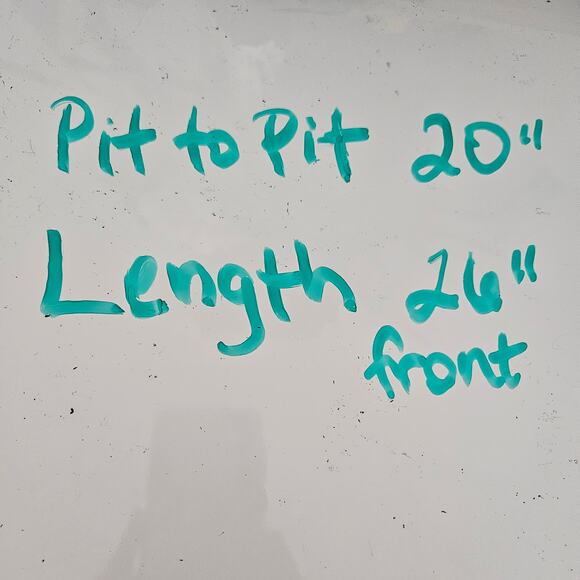 Pit to Pit 20"
Length 26"
front